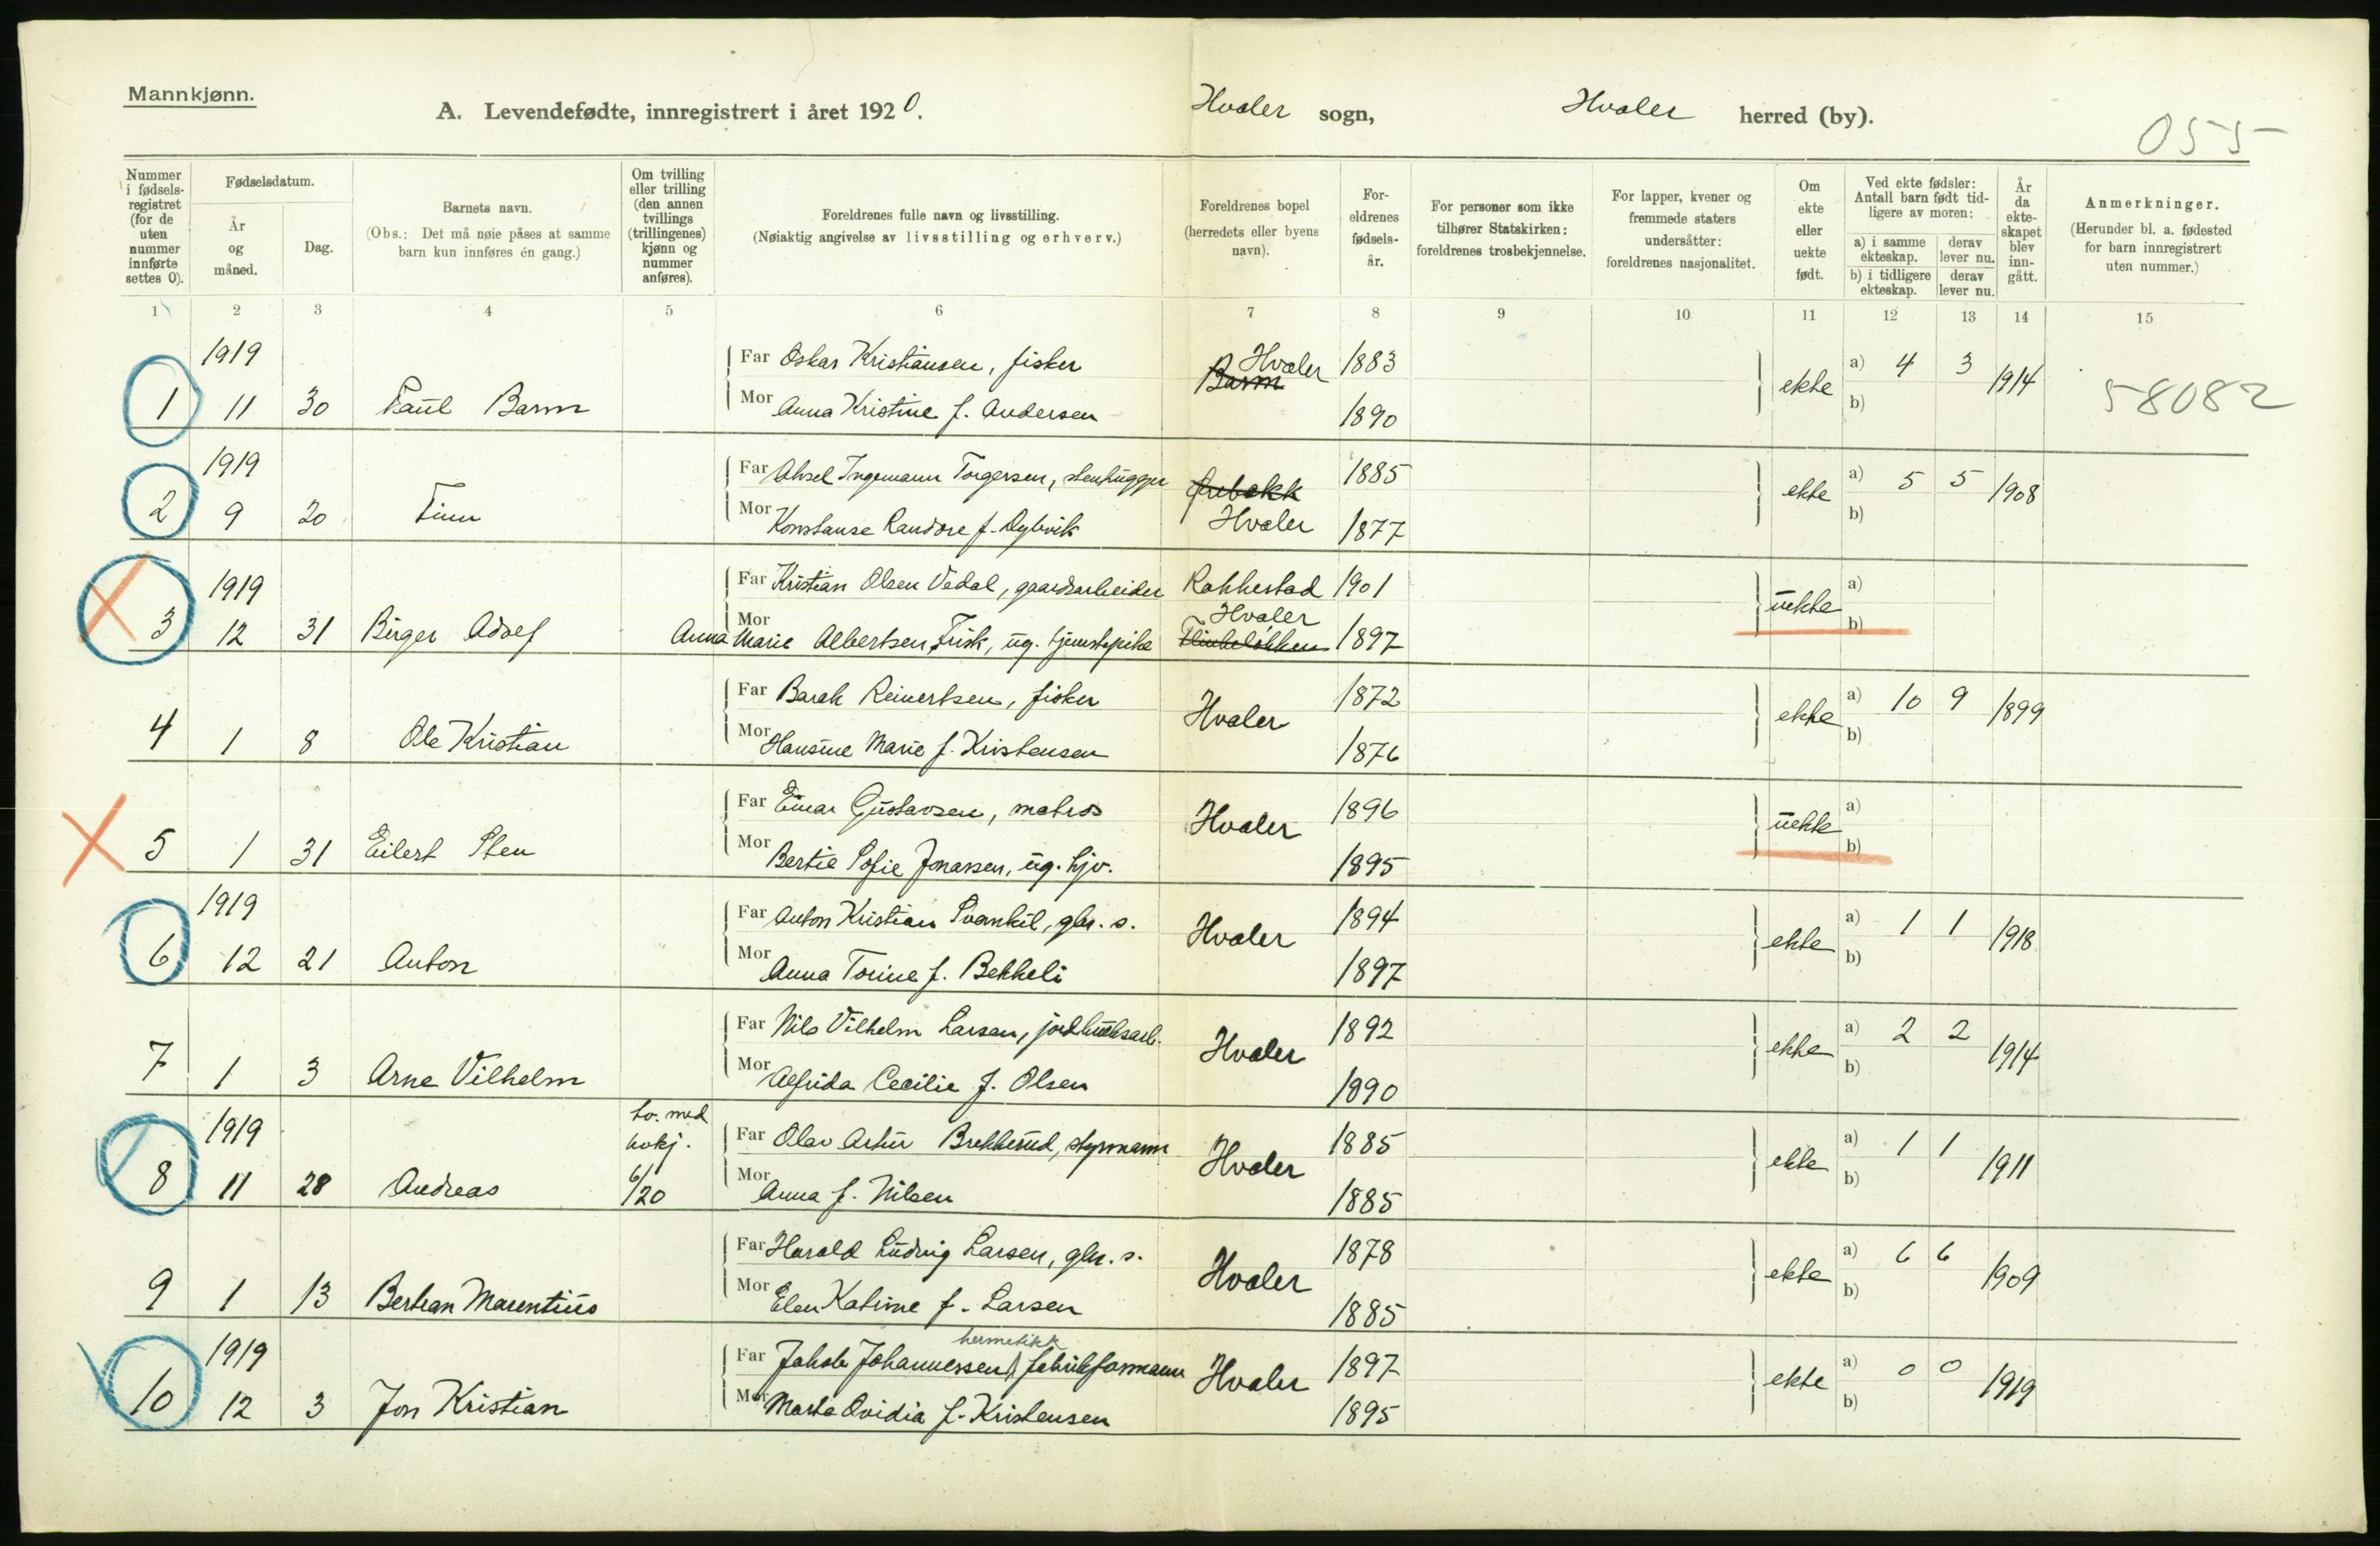 Mannkjønn.
A. Levendefødte, innregistrert i året 1920. Hvaler sogn, Hvaler herred (by).
055
Nummer i fødsels- registret (for de uten nummer innførte settes 0).
Fødselsdatum.
År og måned.
Dag.
Barnets navn.
(Obs.: Det må nøie påses at samme barn kun innføres én gang.)
Om tvilling eller trilling (den annen tvillings (trillingenes) kjønn og nummer anføres).
Foreldrenes fulle navn og livsstilling.
(Nøiaktig angivelse av livsstilling og erhverv.)
Foreldrenes bopel (herredets eller byens navn).
For- eldrenes fødsels- år.
For personer som ikke tilhører Statskirken: foreldrenes trosbekjennelse.
For lapper, kvener og fremmede staters undersåtter: foreldrenes nasjonalitet.
Om ekte eller uekte født.
Ved ekte fødsler: Antall barn født tid- ligere av moren:
a) i samme ekteskap. derav lever nu.
b) i tidligere ekteskap. derav lever nu.
År da ekte- skapet blev inn- gått.
Anmerkninger.
(Herunder bl. a. fødested for barn innregistrert uten nummer.)
1 2 3 4 5 6 7 8 9 10 11 12 13 14 15
1919 Far Oskar Kristiansen, fisker Hvaler 1883 a) 4 3
1 11 30 Paul Barm Mor Anna Kristine f. Andersen Barm 1890 ekte b) 1914 58082
1919 Far Aksel Ingemann Torgersen, stenhugger Ørebekk 1885 a) 5 5
2 9 20 Finn Mor Konstanse Randore f. Dybvik Hvaler 1877 ekte b) 1908
1919 Far Kristian Olsen Vedal, gaardsarbeider Rakkestad 1901 a)
3 12 31 Birger Adolf Mor Anna Marie Albertsen Frisk, ug. tjenstepike Hvaler 1897 uekte b)
Far Barak Reinertsen, fisker Hvaler 1872 a) 10 9
4 1 8 Ole Kristian Mor Hansine Marie f. Kristensen 1876 ekte b) 1899
Far Einar Gustavsen, matros Hvaler 1896 a)
5 1 31 Eilert Sten Mor Bertie Sofie Jonassen, ug. hjv. 1895 uekte b)
1919 Far Anton Kristian Svankil, gbr. s. Hvaler 1894 a) 1 1
6 12 21 Anton Mor Anna Torine f. Bekkeli 1897 ekte b) 1918
Far Nils Vilhelm Larsen, jordbruksarb. Hvaler 1892 a) 2 2
7 1 3 Arne Vilhelm Mor Alfrida Cecilie f. Olsen 1890 ekte b) 1914
1919 tv. med kvkj. 6/20 Far Olav Artur Brekkerud, styrmann Hvaler 1885 a) 1 1
8 11 28 Andreas Mor Anna f. Nilsen 1885 ekte b) 1911
Far Harald Ludvig Larsen, gbr. s. Hvaler 1878 a) 6 6
9 1 13 Bertran Marentius Mor Elen Katrine f. Larsen 1885 ekte b) 1909
hermetikk
1919 Far Jakob Johannessen, fabrikformann Hvaler 1897 a) 0 0
10 12 3 Jon Kristian Mor Marta Ovidia f. Kristensen 1895 ekte b) 1919